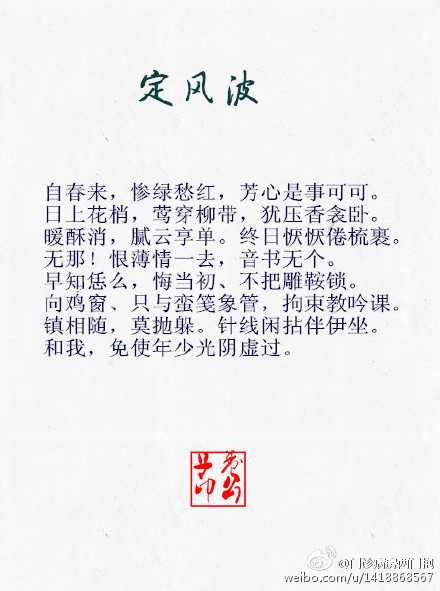 定风波
自春来，惨绿愁红，芳心是事可可。
日上花梢，莺穿柳带，犹压香衾卧。
暖酥消，腻云享单。终日恹恹倦梳裹。
无那！恨薄情一去，音书无个。
早知恁么，悔当初、不把雕鞍锁。
向鸡窗、只与蛮笺象管，拘束教吟课。
镇相随，莫抛躲。针线闲拈伴伊坐。
和我，免使年少光阴虚过。
weibo.com/u/1418868567